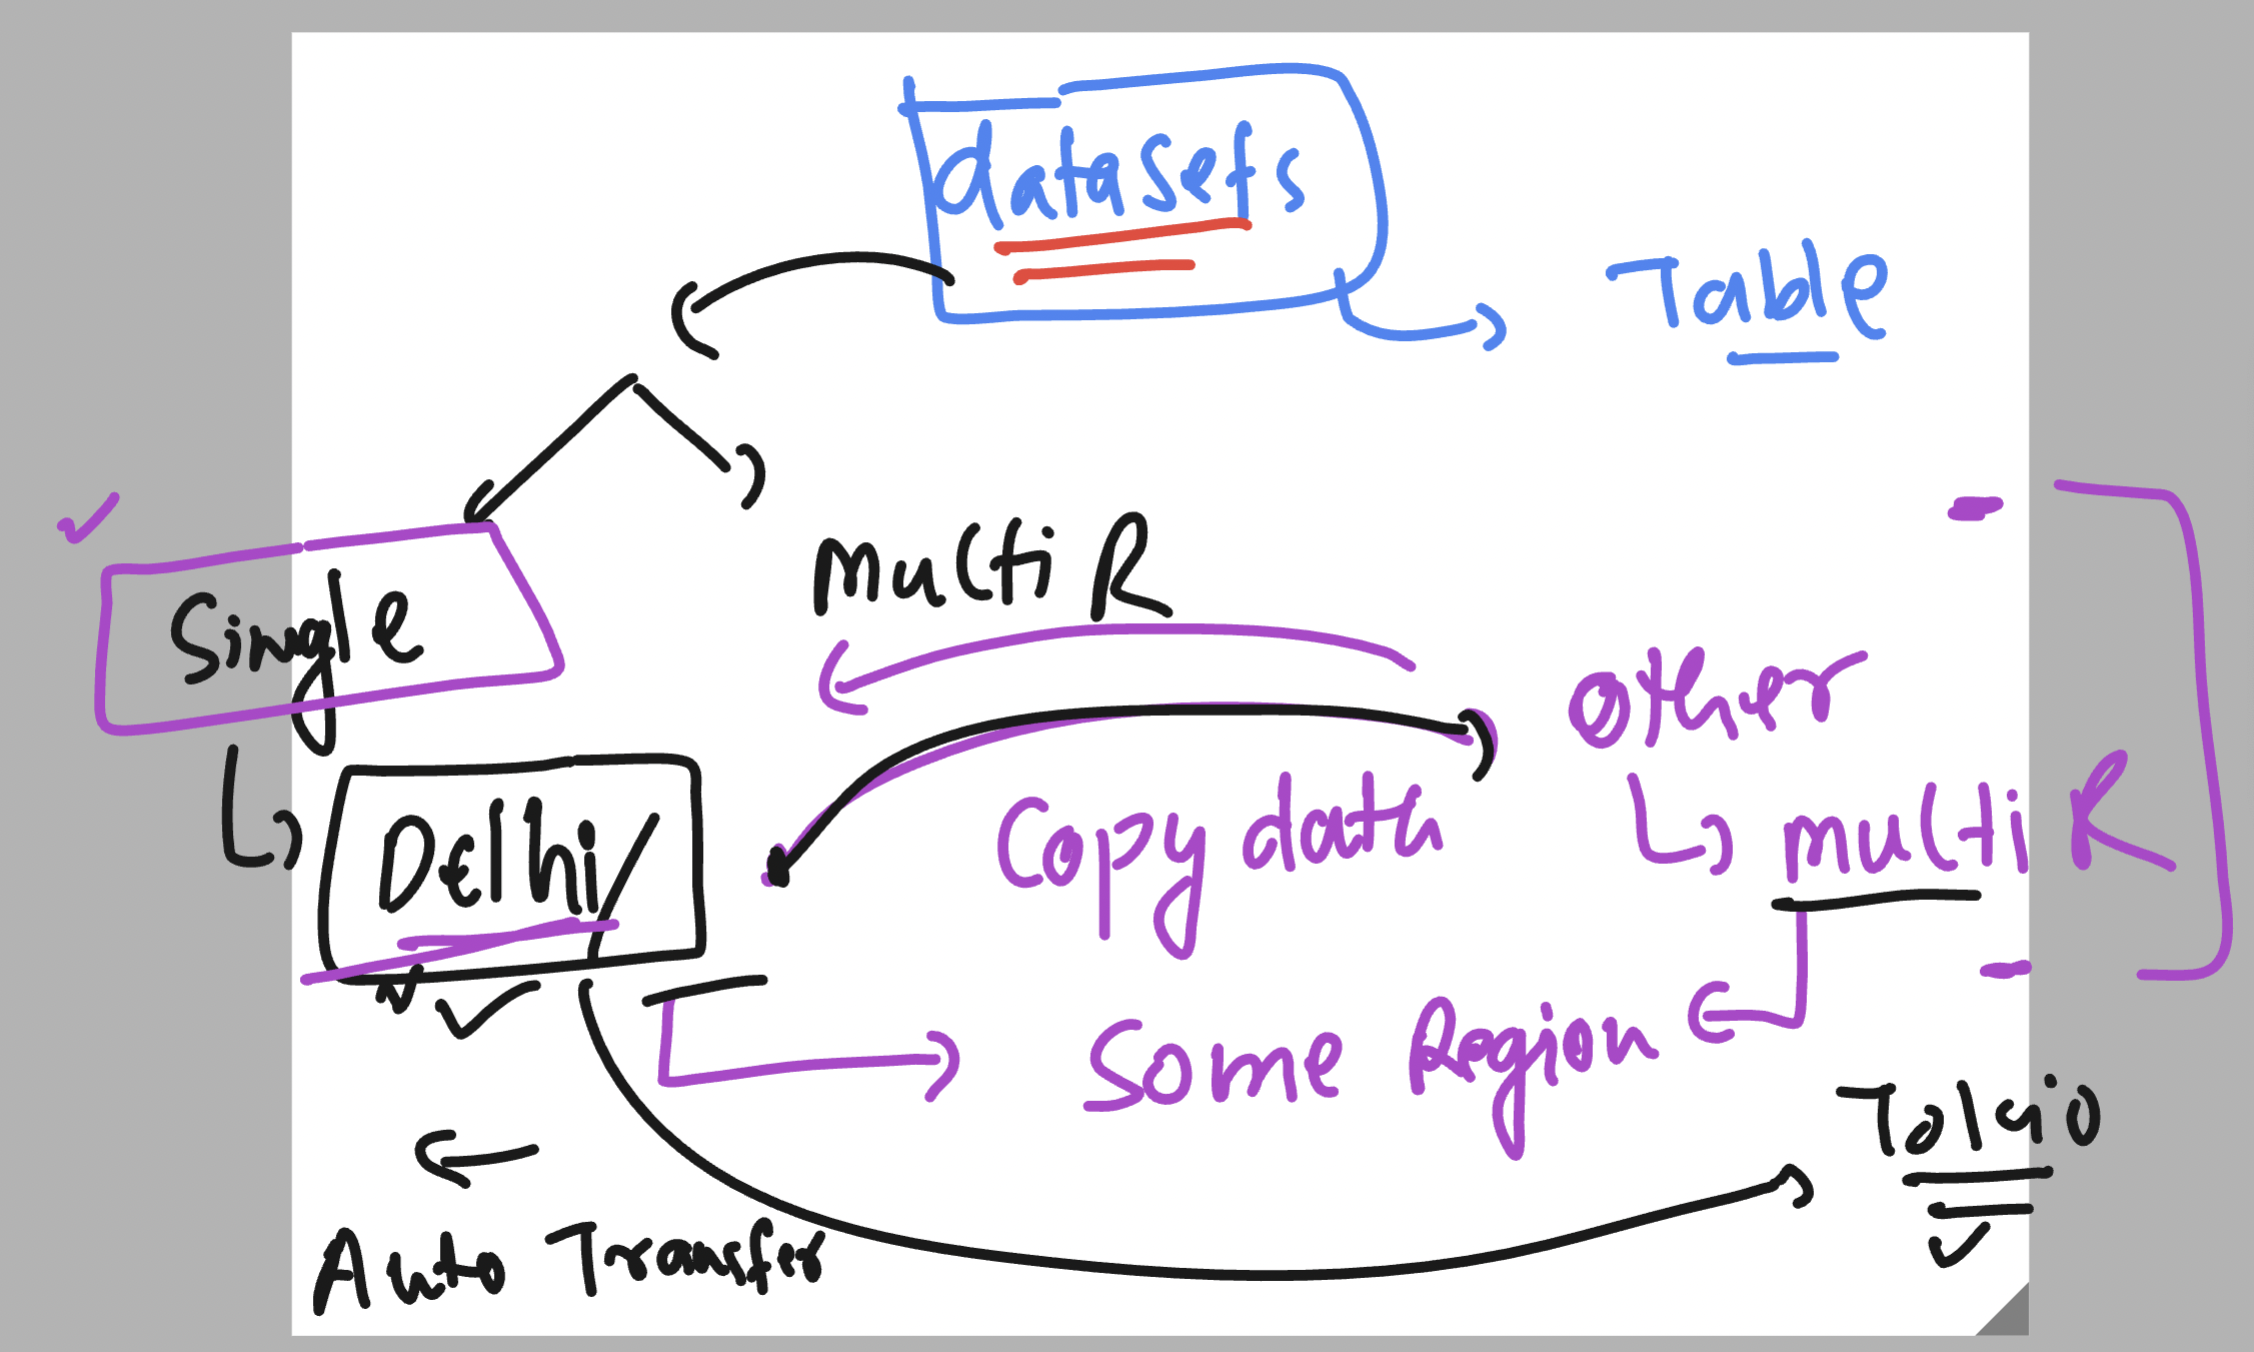 datasets
Table
Single
Multi R
other
Delhi
Copy data
multi R
Some Region
Tokio
Auto Transfer